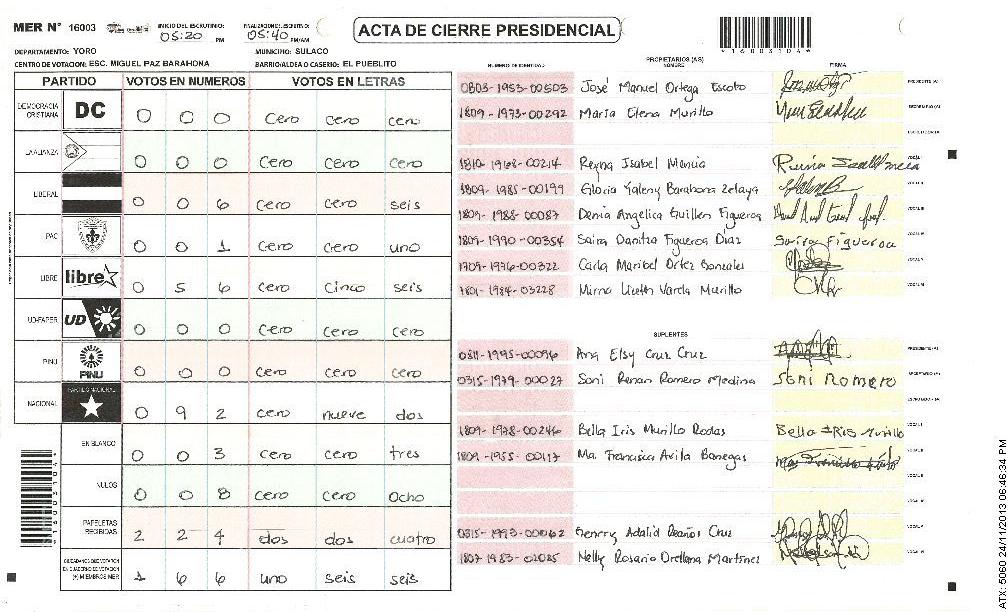 MER N° 16003
INICIO DEL ESCRUTINIO: 05:20 PM
FINALIZACION ESCRUTINIO: 05:40 PM/AM
ACTA DE CIERRE PRESIDENCIAL
*16003104*
DEPARTAMENTO: YORO
MUNICIPIO: SULACO
CENTRO DE VOTACION: ESC. MIGUEL PAZ BARAHONA
BARRIO/ALDEA O CASERIO: EL PUEBLITO
PARTIDO VOTOS EN NUMEROS VOTOS EN LETRAS
DEMOCRACIA CRISTIANA DC 0 0 0 cero cero cero
LA ALIANZA 0 0 0 cero cero cero
LIBERAL 0 0 6 cero cero seis
PAC 0 0 1 cero cero uno
LIBRE libre 0 5 6 cero cinco seis
UD-FAPER UD 0 0 0 cero cero cero
PINU PINU 0 0 0 cero cero cero
NACIONAL PARTIDO NACIONAL 0 9 2 cero nueve dos
EN BLANCO 0 0 3 cero cero tres
NULOS 0 0 8 cero cero ocho
PAPELETAS RECIBIDAS 2 2 4 dos dos cuatro
CIUDADANOS QUE VOTARON EN CUADERNO DE VOTACION (+) MIEMBROS MER 1 6 6 uno seis seis
NUMERO DE IDENTIDAD
PROPIETARIOS (AS)
NOMBRE
FIRMA
0803-1953-00503 José Manuel Ortega Escoto PRESIDENTE (A)
1809-1973-00292 María Elena Murillo SECRETARIO (A)
ESCRUTADOR (A)
1810-1968-00214 Reyna Isabel Mencia VOCAL I
1809-1985-00199 Gloria Yaleny Barahona Zelaya VOCAL II
1809-1988-00087 Denia Angelica Guillen Figueroa VOCAL III
1809-1990-00354 Saira Danitza Figueroa Díaz Saira Figueroa
1709-1976-00322 Carla Maribel Ortez Gonzales
1801-1984-03228 Mirna Lizeth Varela Murillo
SUPLENTES
0311-1995-00096 Ana Elsy Cruz Cruz PRESIDENTE (A)
0315-1979-00027 Soni Renan Romero Medina Soni Romero SECRETARIO (A)
ESCRUTADOR (A)
1809-1978-00246 Bella Iris Murillo Rodas Bella Iris Murillo VOCAL I
1809-1955-00117 Ma. Francisca Avila Banegas VOCAL II
VOCAL III
0315-1993-00062 Adalid Cruz
1807-1983-02085 Nelly Rosario Orellana Martinez
ATX: 5060 24/11/2013 06:46:34 PM